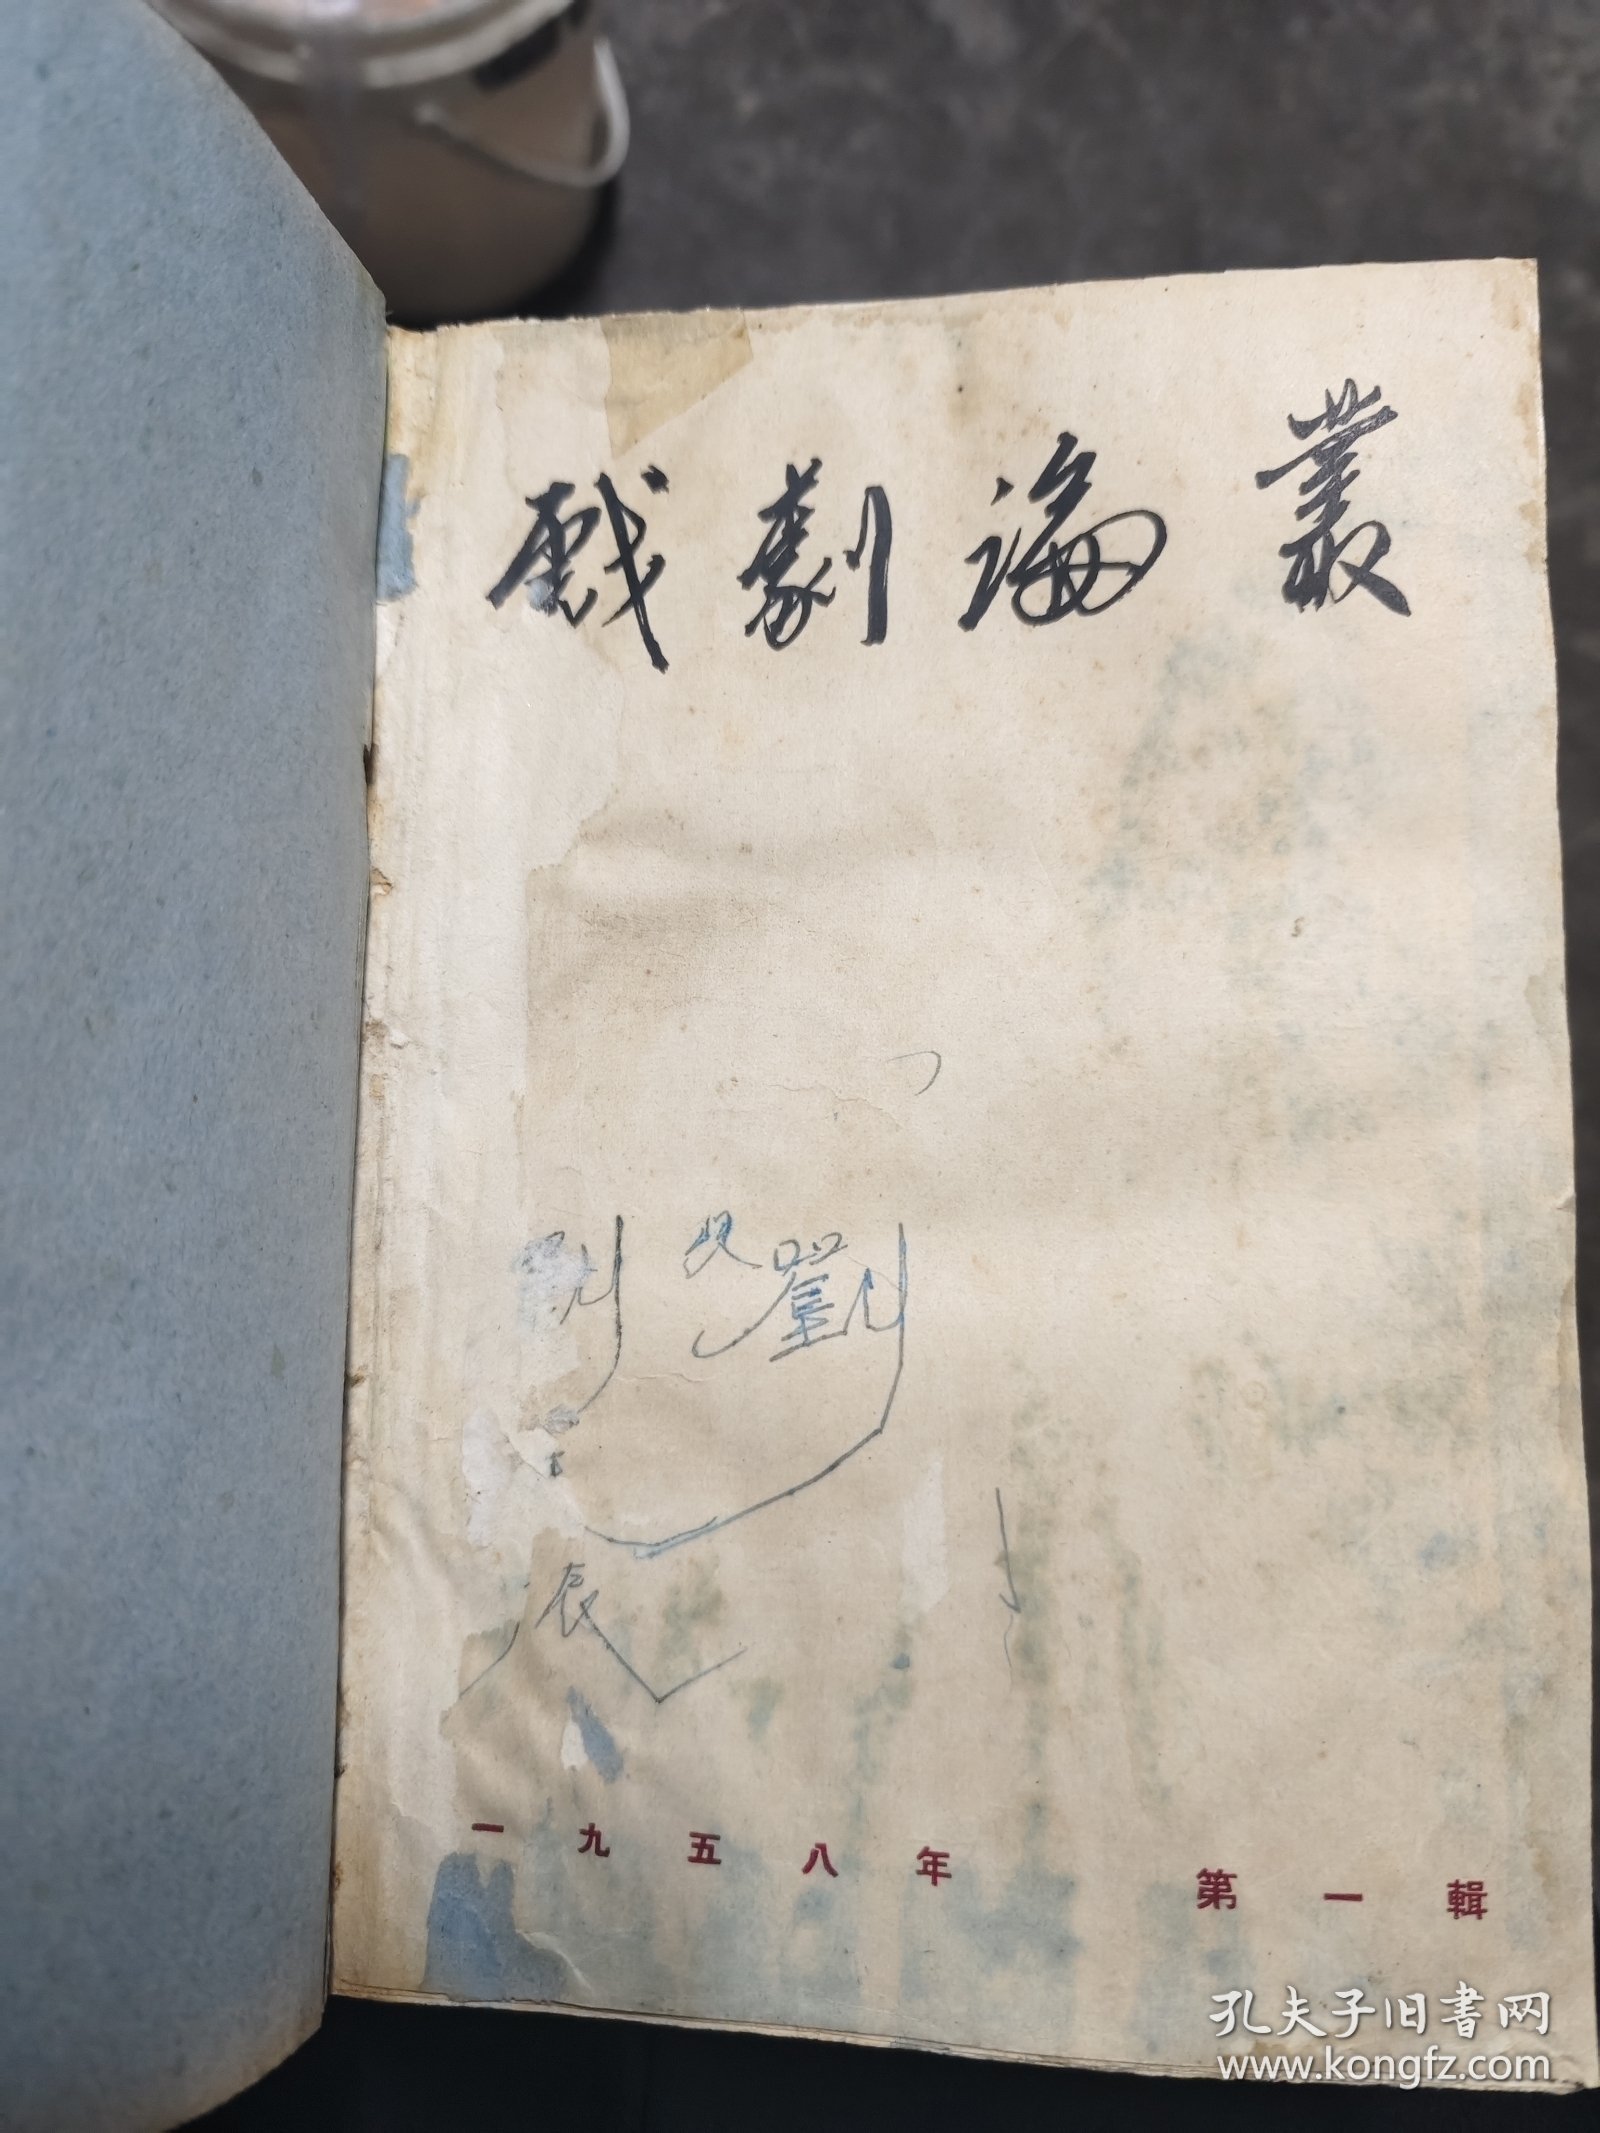 戲劇論叢
劉
辰
一九五八年 第一輯
孔夫子旧書网
www.kongfz.com